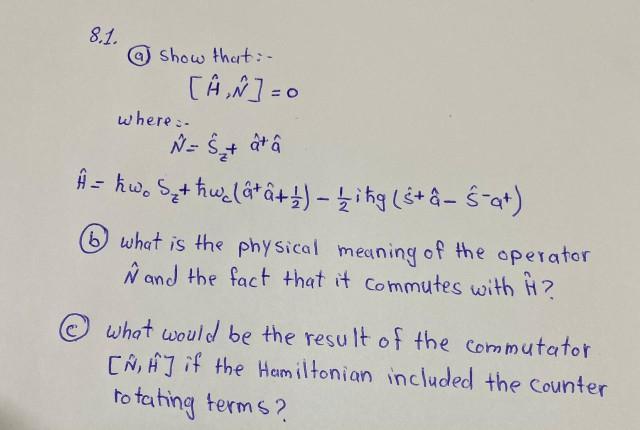 8.1.
ⓐ show that:-
[Ĥ,N̂] = 0
where:-
N̂ = Ŝz + â⁺â
Ĥ = ħω₀ Sz + ħωc(â⁺â + ½) - ½iħg (ŝ⁺â - Ŝ⁻a⁺)
ⓑ what is the physical meaning of the operator
N̂ and the fact that it commutes with Ĥ?
ⓒ what would be the result of the commutator
[N̂, Ĥ] if the Hamiltonian included the counter
rotating terms?